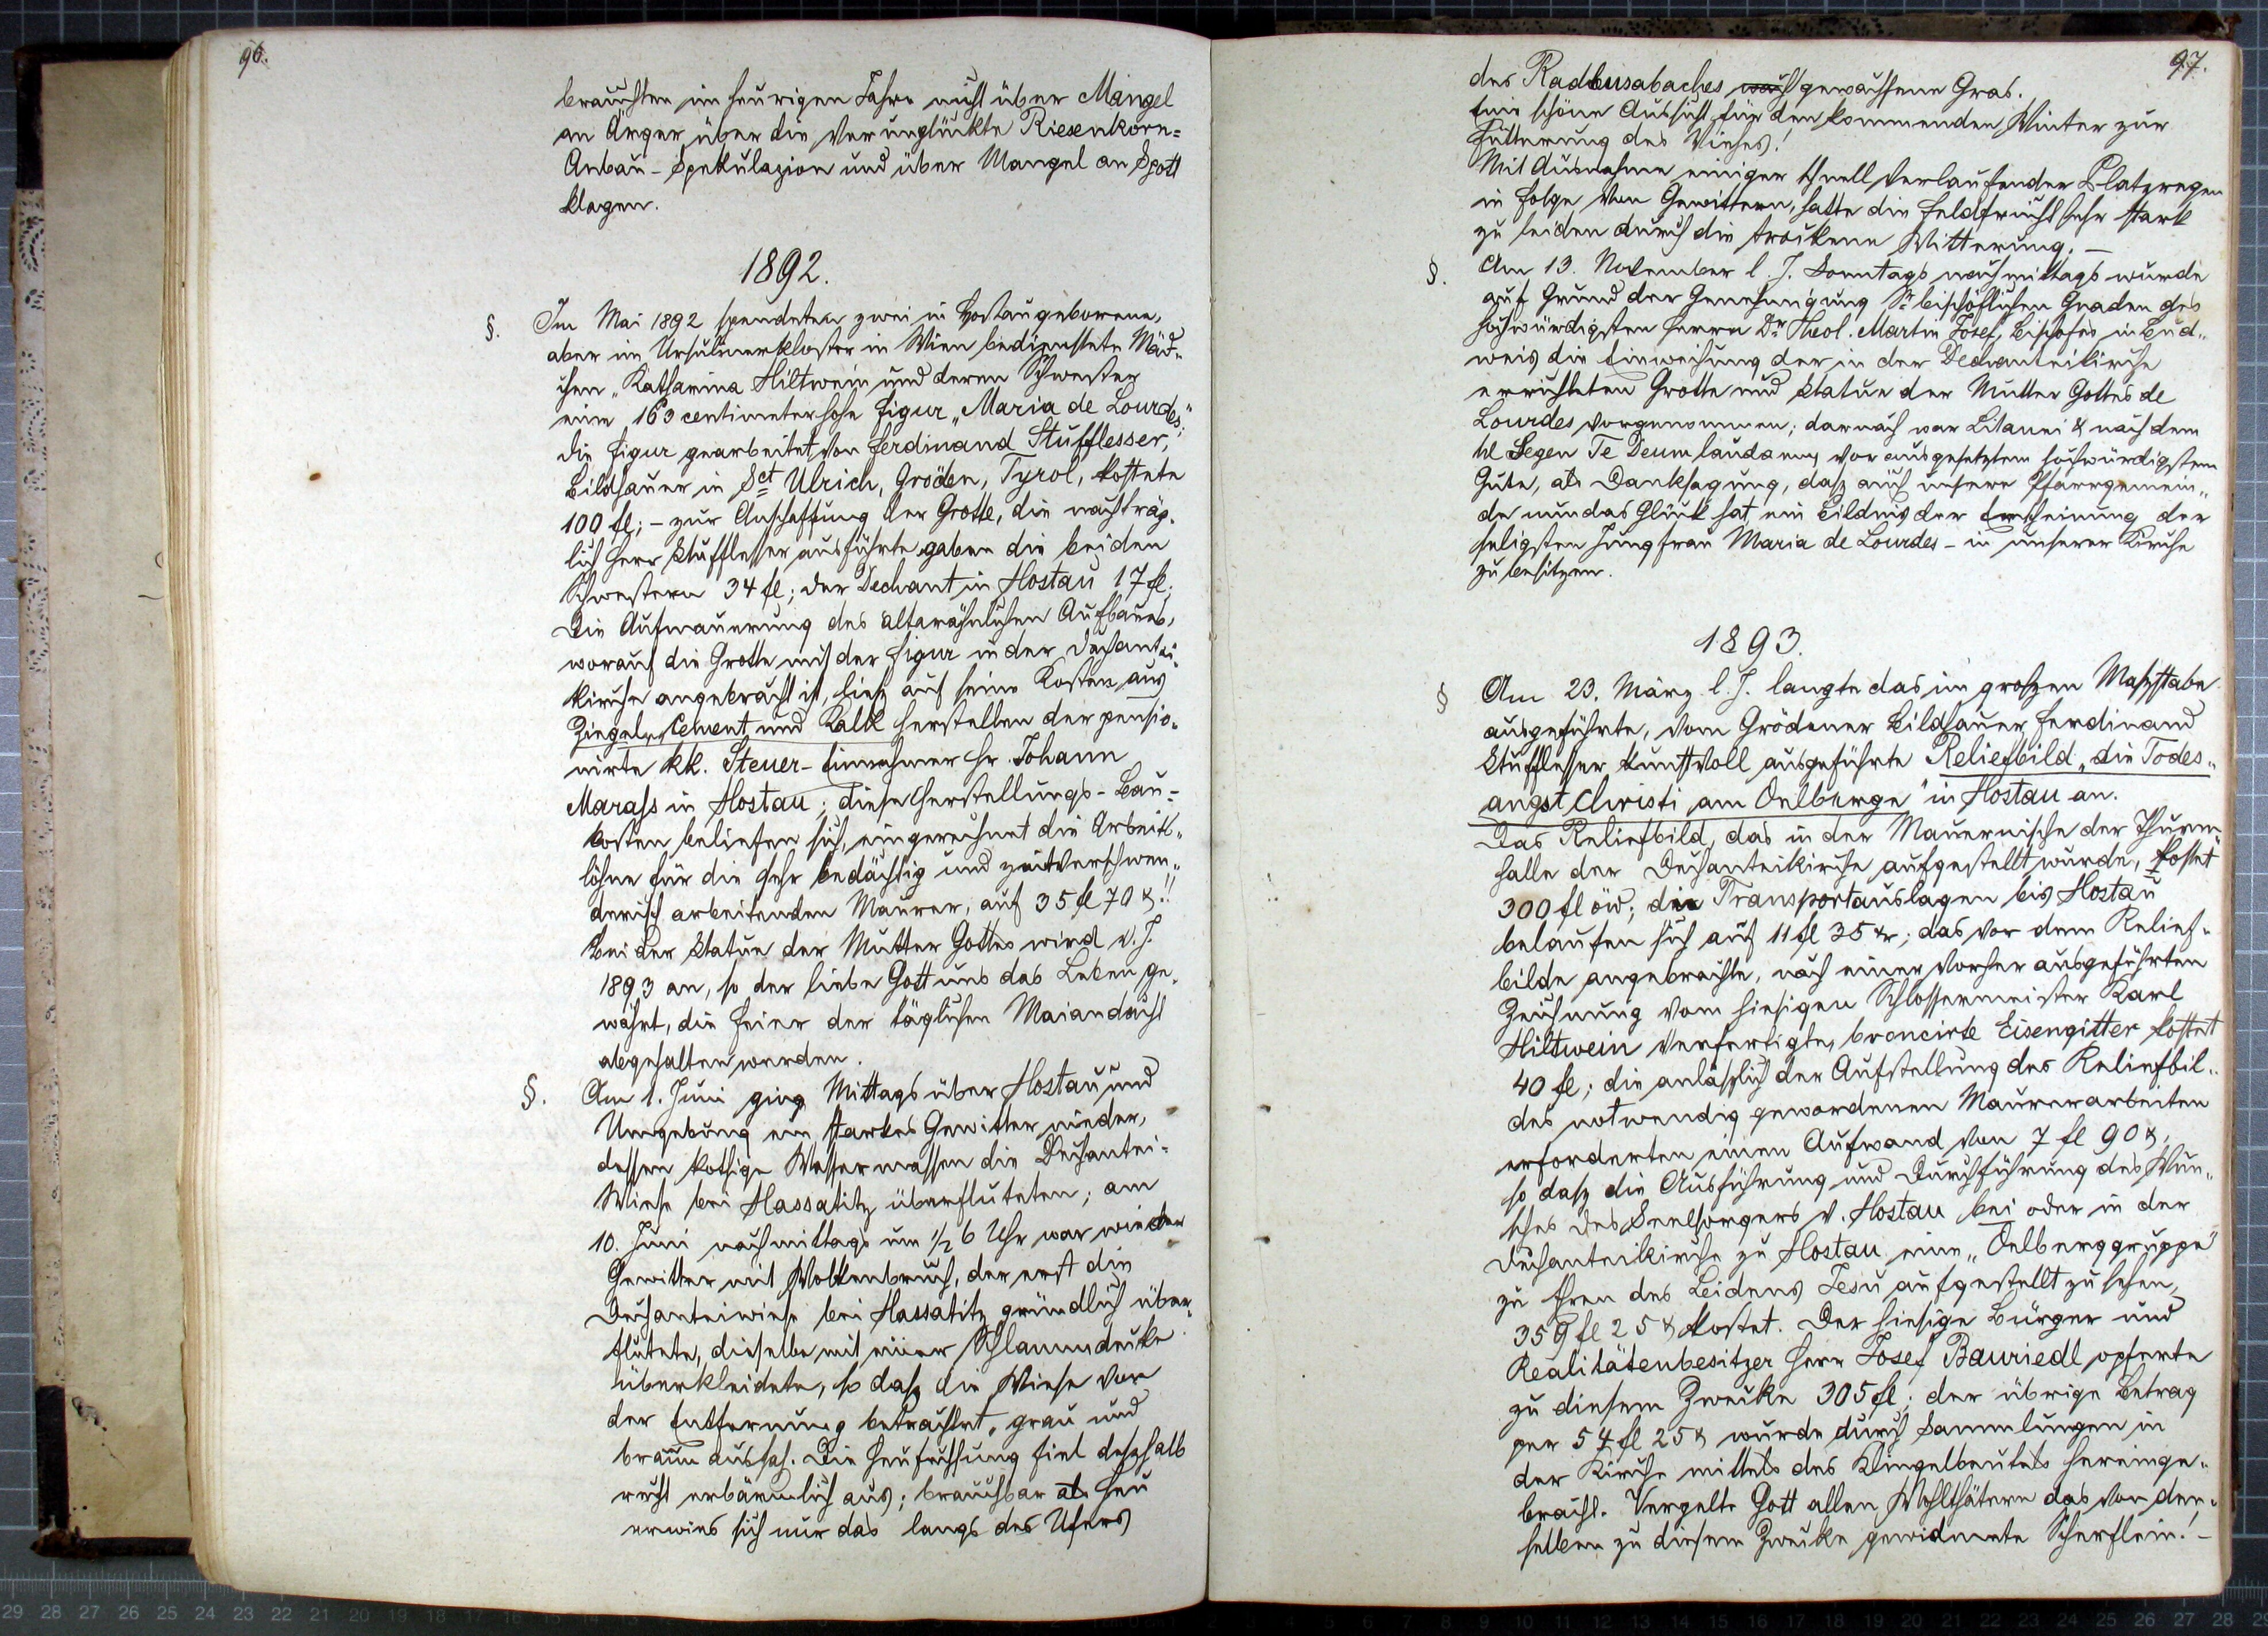 96.
brauchten im heurigen Jahre nicht über Mangel
an Ärger über die verunglückte Riesenkorn=
Anbau-Spekulazion und über Mangel an Spott
klagen.
1892.
§. Im Mai 1892 spendeten zwei in Hostau geborene,
aber im Ursulinerkloster in Wien bedienstete Mäd„
chen „Katharina Hiltwein und deren Schwester
eine 163 centimeter hohe Figur „Maria de Lourdes;"
die Figur gearbeitet von Ferdinand Stufflesser,
Bildhauer in Sct Ulrich, Gröden, Tyrol, kostete
100 fl; – zur Anschaffung der Grotte, die nachträg„
lich Herr Stufflesser ausführte gaben die beiden
Schwestern 34 fl; der Dechant in Hostau 17 fl;
Die Aufmauerung des altarähnlichen Aufbaues,
worauf die Grotte mit der Figur in der Dechantei„
kirche angebracht ist, ließ auf seine Kosten aus
Ziegel, Cement und Kalk herstellen der pensio„
nirte kk. Steuer-Einnehmer Hr. Johann
Marass in Hostau; diese Herstellungs-Bau=
kosten beliefen sich, eingerechnet die Arbeits„
löhne für die sehr bedächtig und zeitverschwen„
derisch arbeitenden Maurer, auf 35 fl 70 x!!
Bei der Statue der Mutter Gottes wird v. J.
1893 an, so der liebe Gott uns das Leben ge„
währt, die Feier der täglichen Maiandacht
abgehalten werden.
§. Am 1. Juni ging Mittags über Hostau und
Umgebung ein starkes Gewitter nieder,
dessen kothige Wassermassen die Dechantei=
Wiese bei Hassatitz überfluteten; am
10. Juni nachmittags um 1/2 6 Uhr war wieder
Gewitter mit Wolkenbruch, der erst die
Dechanteiwiese bei Hassatitz gründlich über„
flutete, dieselbe mit einer Schlammdecke
überkleidete, so daß die Wiese von
der Entfernung betrachtet, grau und
braun aussah. Die Heufechsung fiel deßhalb
recht erbärmlich aus; brauchbar als Heu
erwies sich nur das langs des Ufers
97.
des Radbusabaches nach gewachsene Gras.
Eine schöne Aussicht für den kommenden Winter zur
Fütterung des Viehes!
Mit Ausnahme einiger schnell verlaufender Platzregen
in Folge von Gewittern, hatte die Feldfrucht sehr stark
zu leiden durch die trockene Witterung. –
§. Am 13. November l. J. Sonntags nachmittags wurde
auf Grund der Genehmigung Sr bischöflichen Gnaden des
hochwürdigsten Herrn Dr Theol. Martin Josef, Bischofes in Bud„
weis die Einweihung der in der Dechanteikirche
errichteten Grotte und Statue der Mutter Gottes de
Lourdes vorgenommen; darnach war Litanei & nach dem
hl Segen Te Deum laudamus vor ausgesetztem hochwürdigstem
Gute, als Danksagung, daß auch unsere Pfarrgemein„
de nun das Glück hat ein Bildnis der Erscheinung der
seligsten Jungfrau Maria de Lourdes – in unserer Kirche
zu besitzen.
1893.
§ Am 23. März l. J. langte das im großen Maßstabe
ausgeführte, vom Grödener Bildhauer Ferdinand
Stufflesser kunstvoll ausgeführte Reliefbild „die Todes„
angst Christi am Oelberge" in Hostau an.
Das Reliefbild, das in der Mauernische der Thurm„
halle der Dechanteikirche aufgestellt wurde, kostet
300 fl öw; die Transportauslagen bis Hostau
belaufen sich auf 11 fl 35 xr; das vor dem Relief„
bilde angebrachte, nach einer vorher ausgeführten
Zeichnung vom hiesigen Schlossermeister Karl
Hiltwein verfertigte, broncirte Eisengitter kostet
40 fl; die anläßlich der Aufstellung des Reliefbil„
des notwendig gewordenen Maurerarbeiten
erforderten einen Aufwand von 7 fl 90 x,
so daß die Ausführung und Durchführung des Wun„
sches des Seelsorgers v. Hostau bei oder in der
Dechanteikirche zu Hostau eine „Oelberggruppe"
zu Ehren des Leidens Jesu aufgestellt zu sehen,
359 fl 25 x kostet. Der hiesige Bürger und
Realitätenbesitzer Herr Josef Bauriedl opferte
zu diesem Zwecke 305 fl; der übrige Betrag
per 54 fl 25 x wurde durch Sammlungen in
der Kirche mittels des Klingelbeutels hereinge„
bracht. Vergelte Gott allen Wohlthätern das von den„
selben zu diesem Zwecke gewidmete Scherflein! –